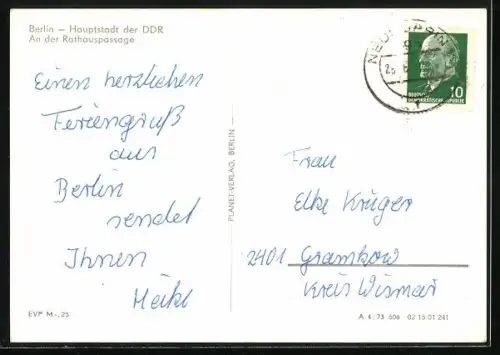 Berlin – Hauptstadt der DDR
An der Rathauspassage
Einen herzlichen
Feriengruß
aus
Berlin
sendet
Ihnen
Heike
PLANET-VERLAG, BERLIN
10
DEMOKRATISCHE REPUBLIK
Frau
Elke Krüger
2401 Gramkow
Kreis Wismar
EVP M -,25
A 4/73 606 02 15 01 241